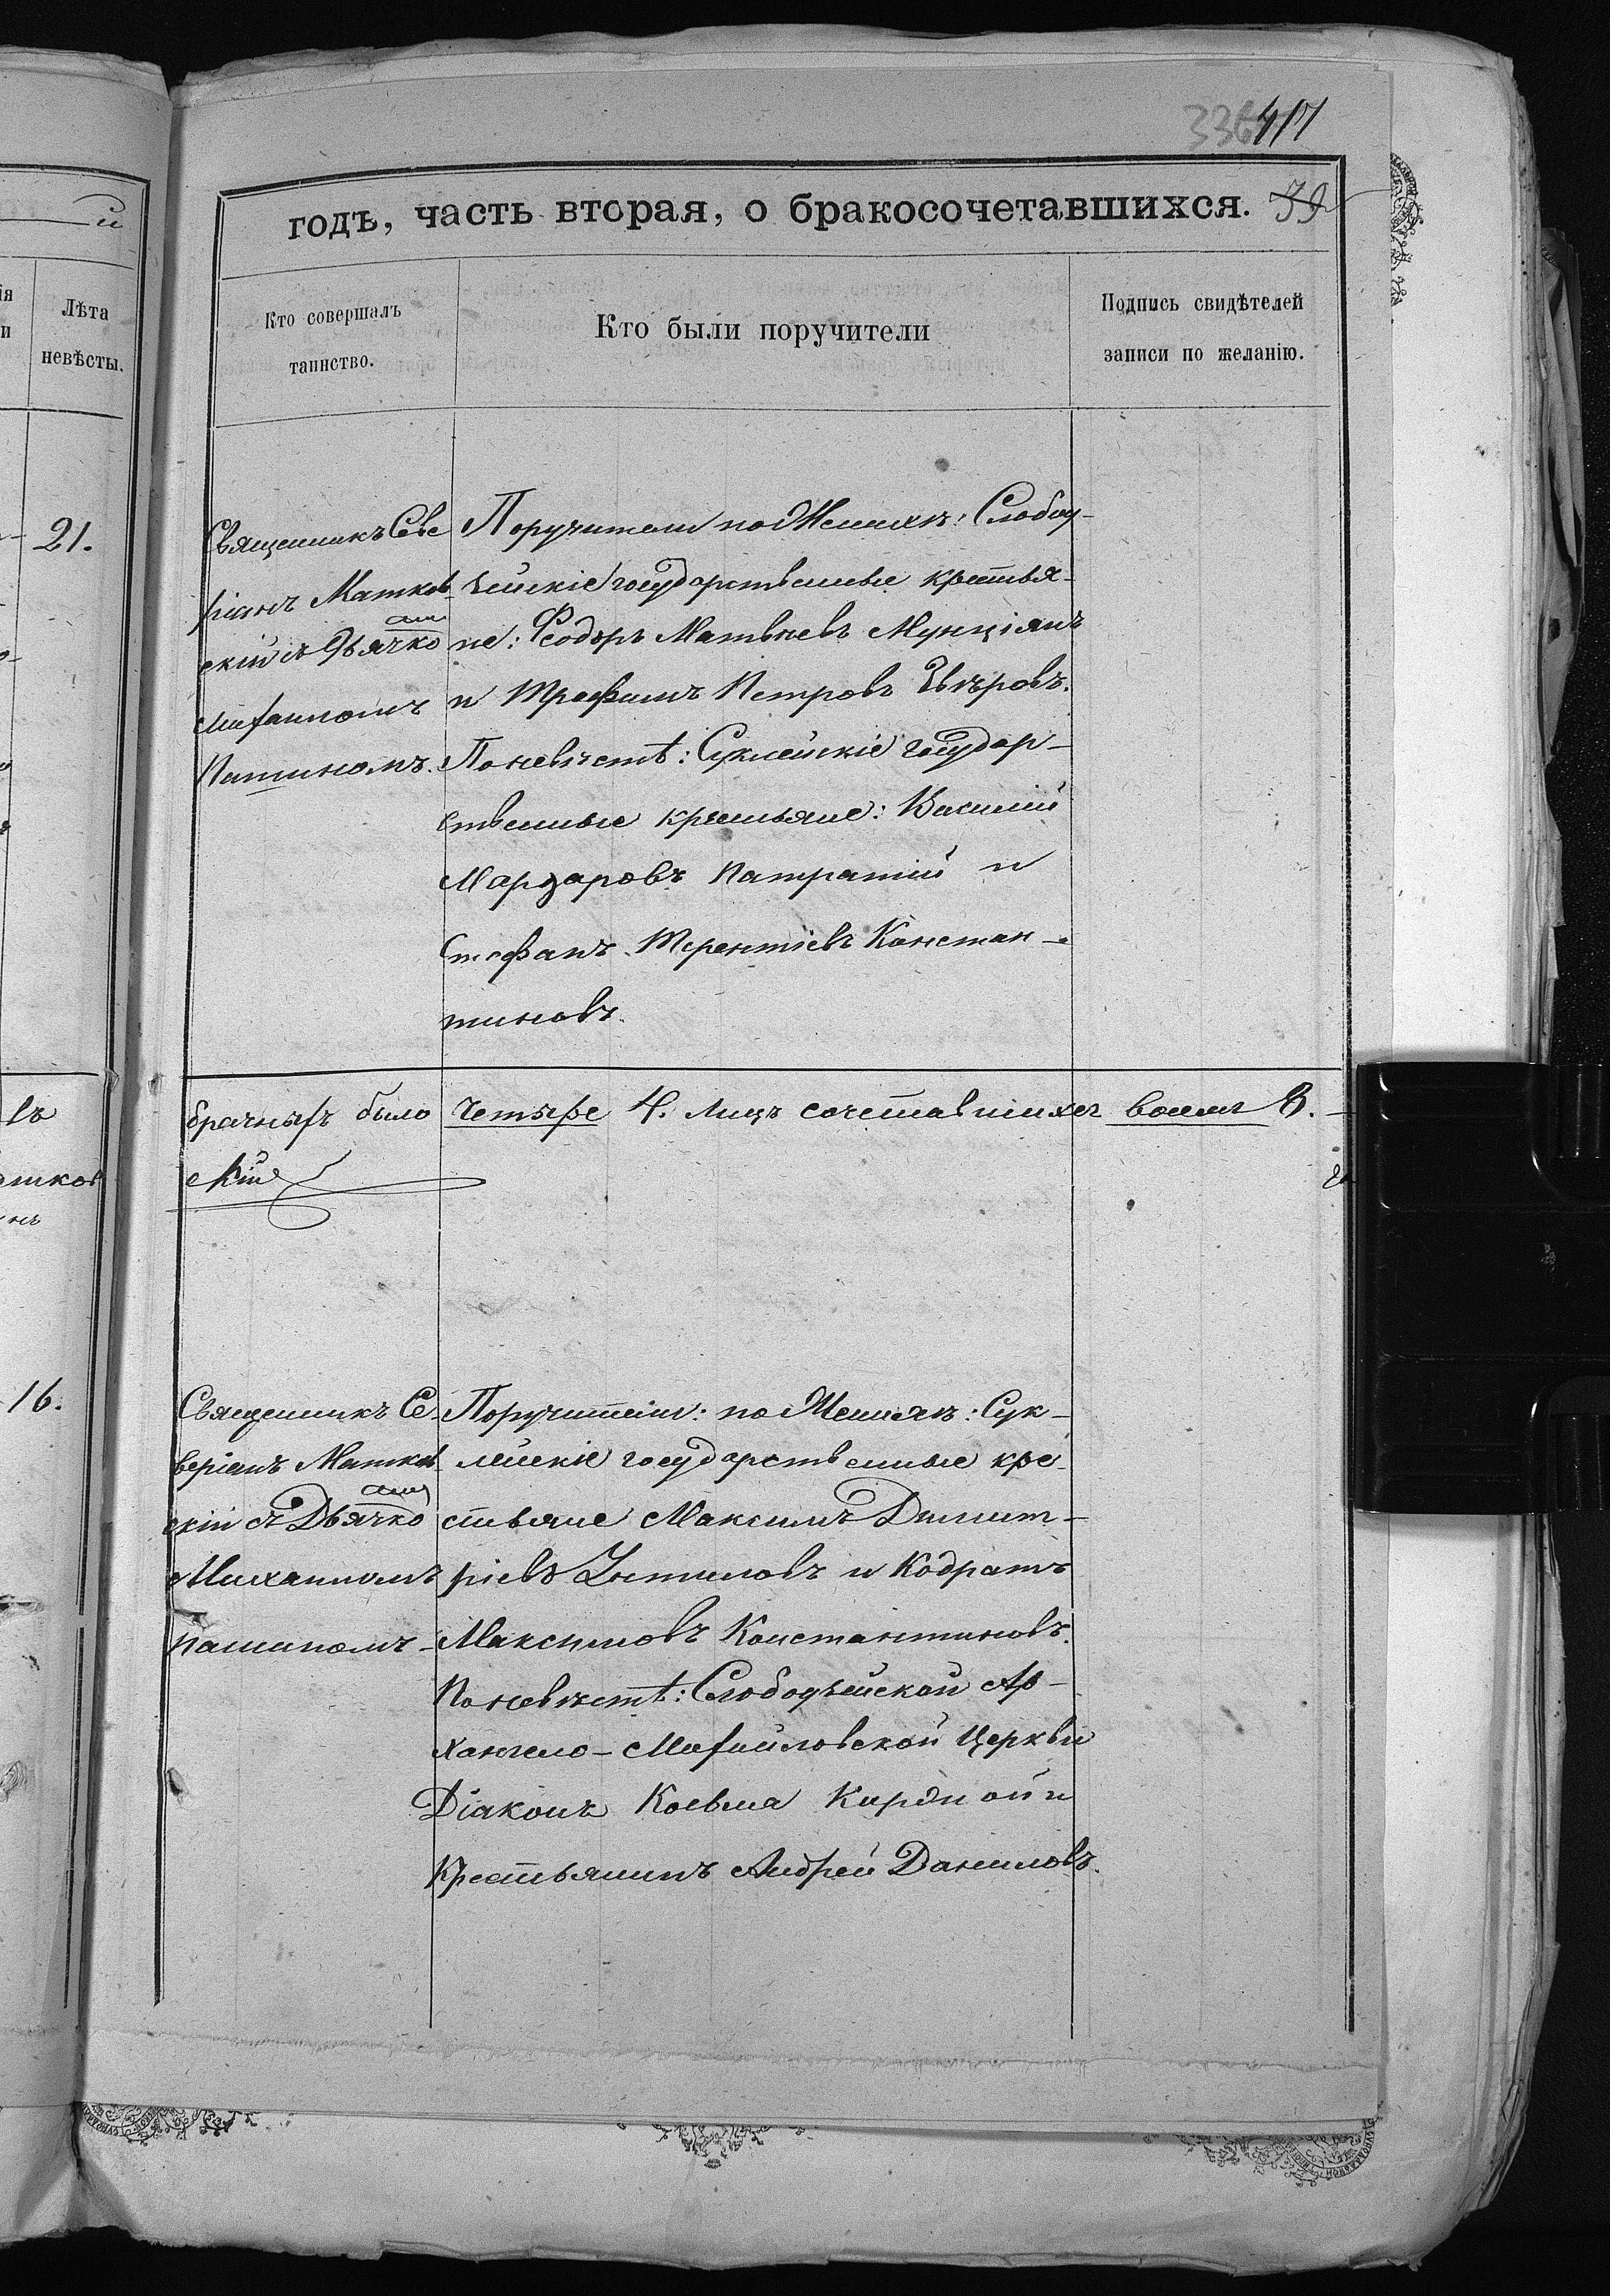 336 417
годъ, часть вторая, о бракосочетавшихся. 39
Лѣта
невѣсты.
Кто совершалъ
таинство.
Кто были поручители
Подпись свидѣтелей
записи по желанію.
21.
Священникъ Севе
ріанъ Матков-
скій съ Дьячко
амъ
Михаиломъ
Пашиномъ.
Поручители по Женихѣ: Слобод-
зейскіе государственные крестья-
не: Ѳеодоръ Матвѣевъ Мунціянъ
и Трофимъ Петровъ Звѣровъ.
По невѣстѣ: Суклейскіе государ-
ственные крестьяне: Василій
Мардаровъ Патратій и
Стефанъ Терентіевъ Констан-
тиновъ.
брачныхъ было четыре 4. лицъ сочетавшихся восемь 8.
скій
16.
Священникъ Се-
веріанъ Матков-
скій съ Дьячко
амъ
Михаиломъ
Пашиномъ
Поручители: по Женихѣ: Сук-
лейскіе государственные кре-
стьяне Максимъ Димит-
ріевъ и Кодратъ
Максимовъ Константиновъ.
По невѣстѣ: Слободзейской Ар-
хангело-Михайловской Церкви
Діаконъ Косьма и
Крестьянинъ Андрей Даниловъ.